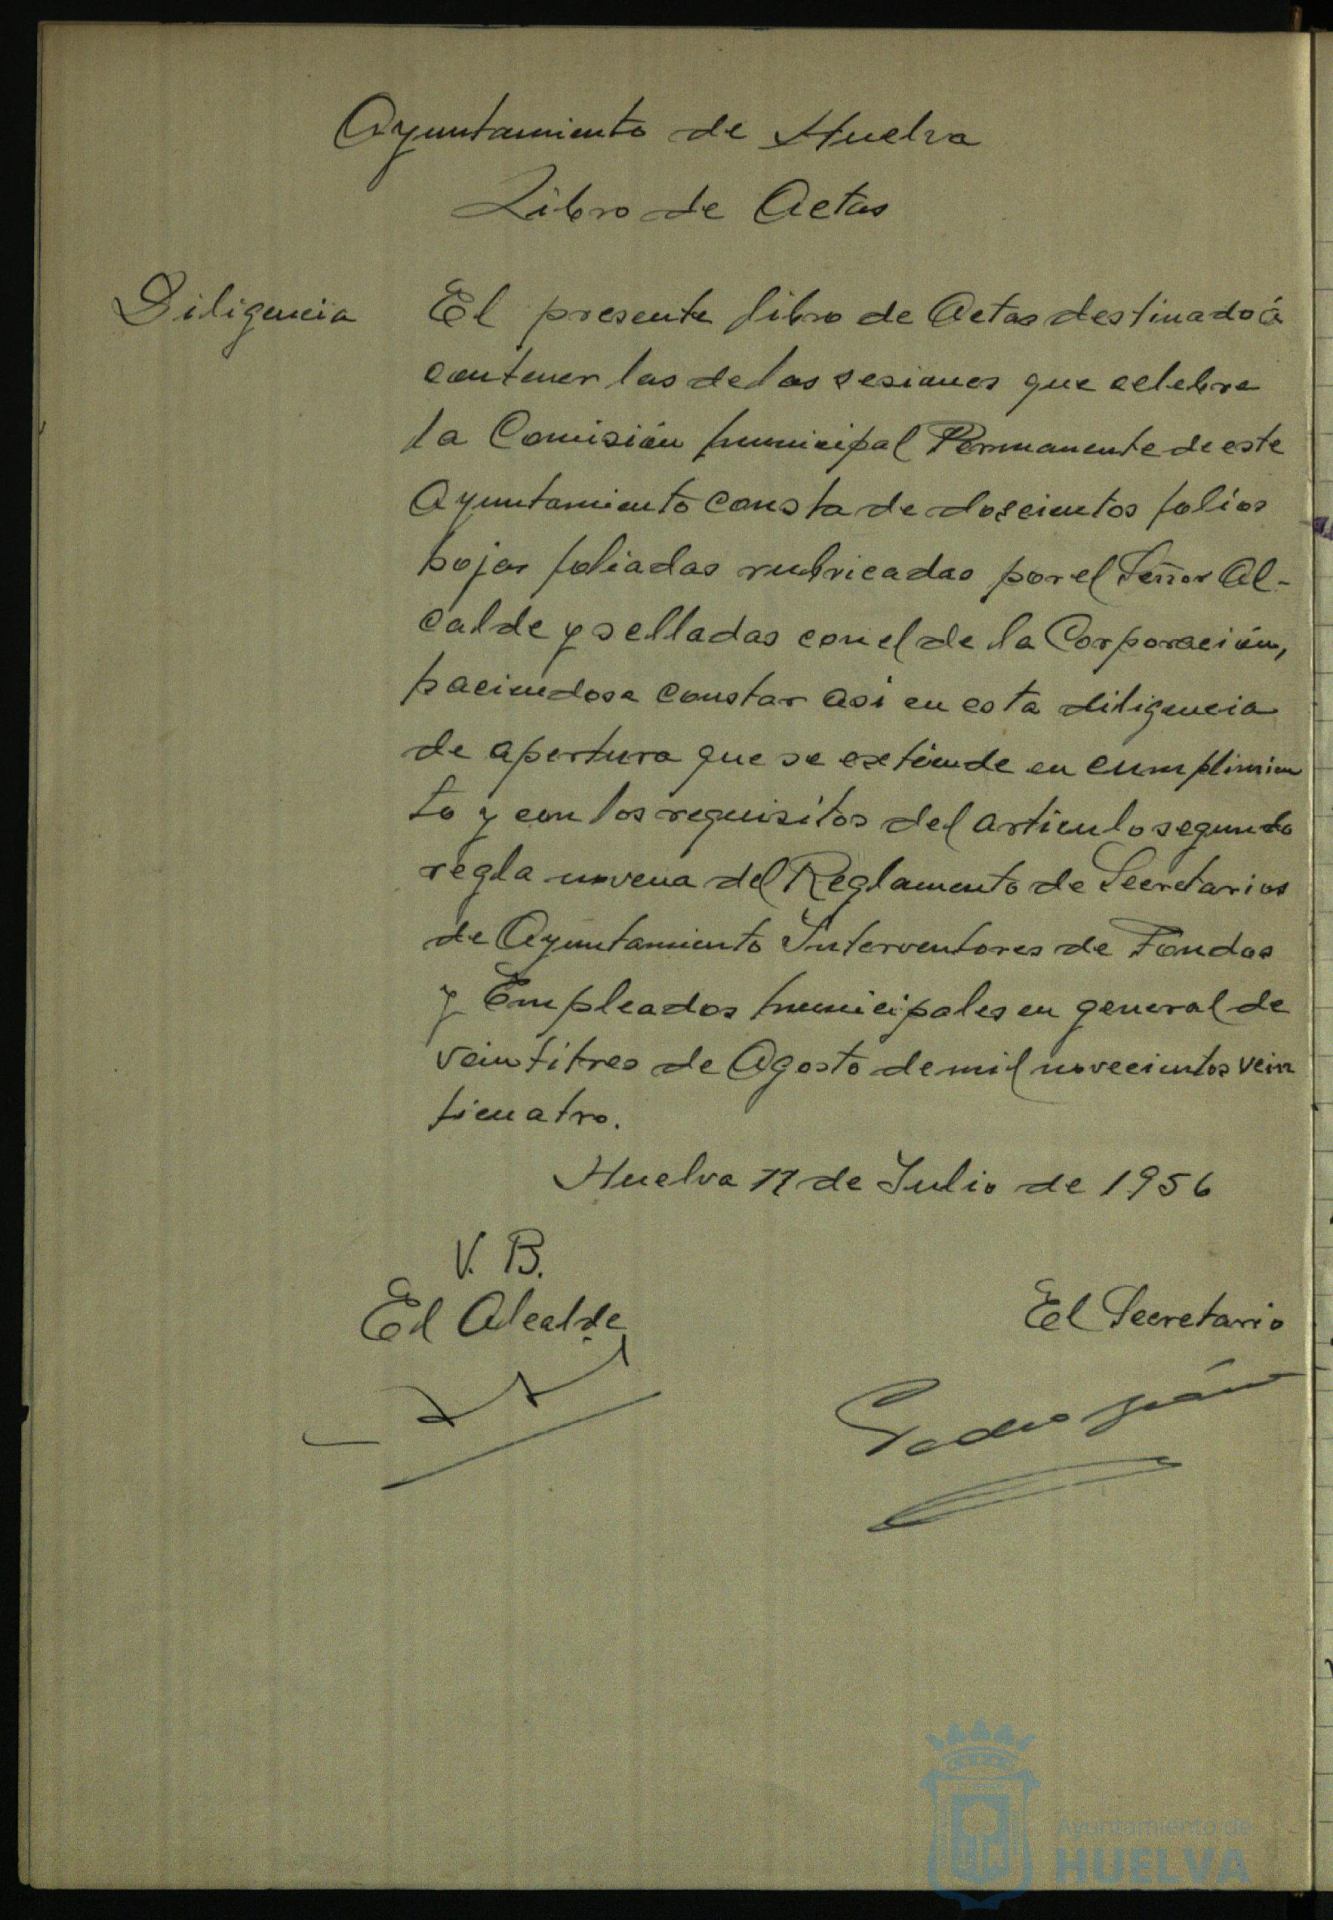 Ayuntamiento de Huelva
Libro de Actas
Diligencia
El presente libro de Actas destinado á
contener las de las sesiones que celebre
la Comisión municipal Permanente de este
Ayuntamiento consta de doscientos folios
hojas foliadas rubricadas por el Señor Al-
calde y selladas con el de la Corporación,
haciendose constar asi en esta diligencia
de apertura que se extiende en cumplimien
to y con los requisitos del articulo segundo
regla novena del Reglamento de Secretarios
de Ayuntamiento Interventores de Fondos
y Empleados municipales en general de
veintitres de Agosto de mil novecientos vein
ticuatro.
Huelva de Julio de 1956
V. B.
El Alcalde
El Secretario
Ayuntamiento de
HUELVA